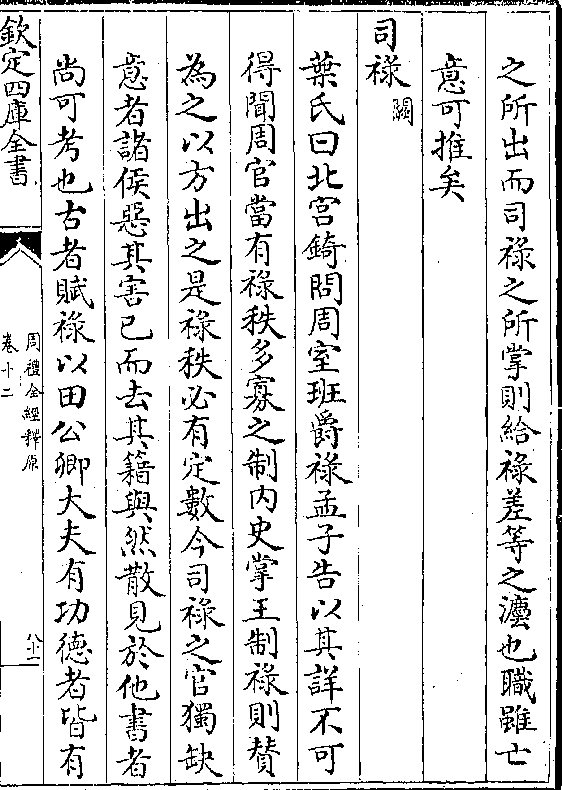 之所出而司祿之所掌則給祿差等之灋也職雖亡
意可推矣
司祿闕
葉氏曰北宮錡問周室班爵祿孟子告以其詳不可
得聞周官當有祿秩多寡之制內史掌王制祿則賛
為之以方出之是祿秩必有定數今司祿之官獨缺
意者諸侯惡其害已而去其籍與然散見於他書者
尚可考也古者賦祿以田公卿大夫有功德者皆有
欽定四庫全書
周禮全經釋原
卷十二